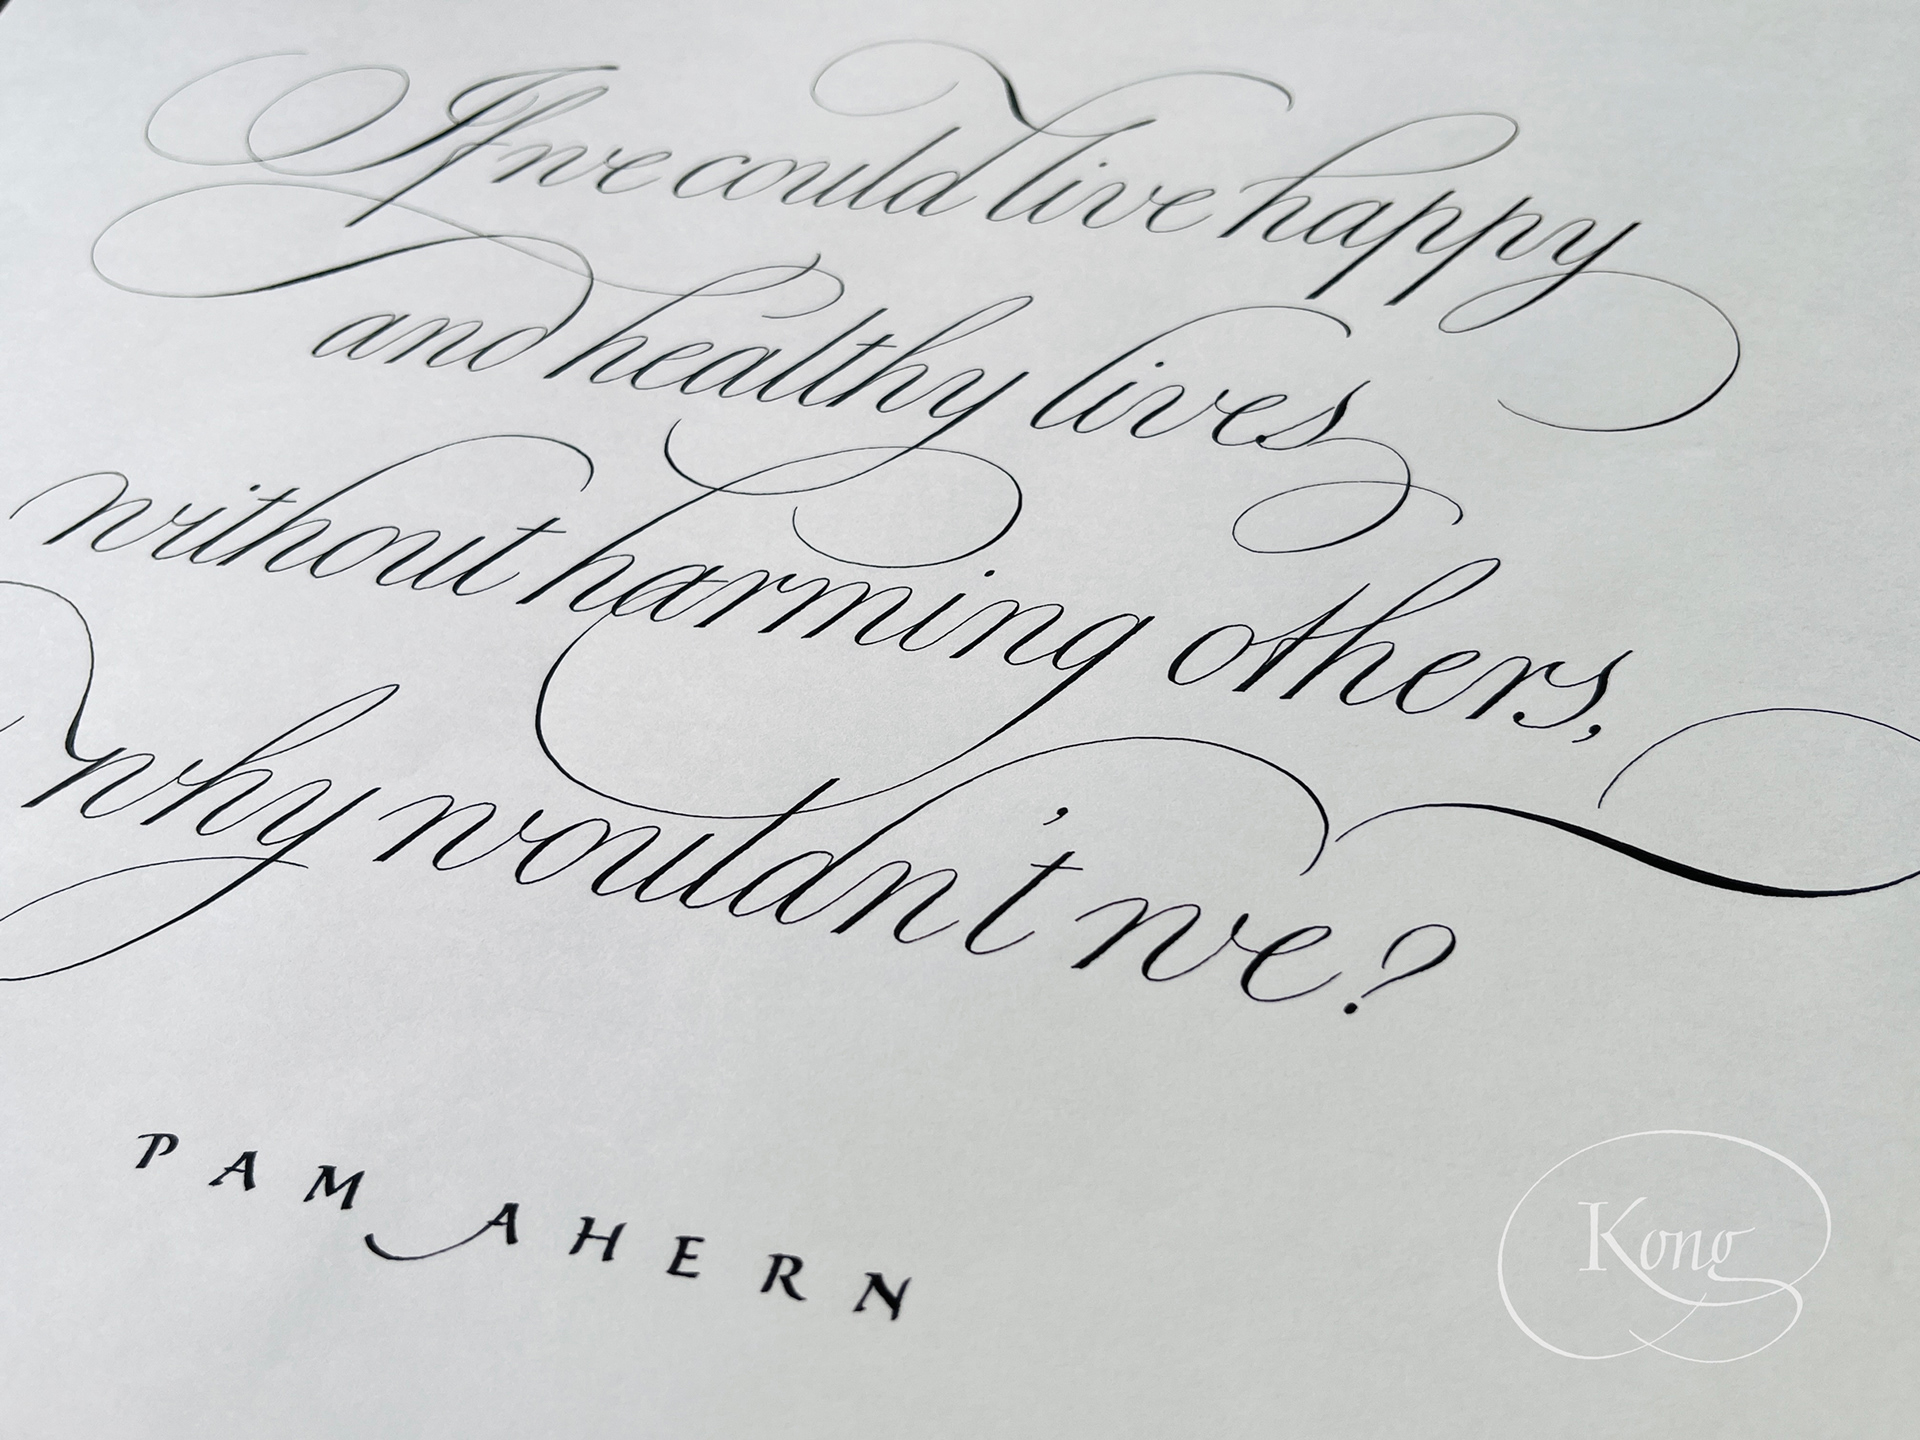 If we could live happy
and healthy lives
without harming others,
why wouldn't we?
PAM AHERN
Kong